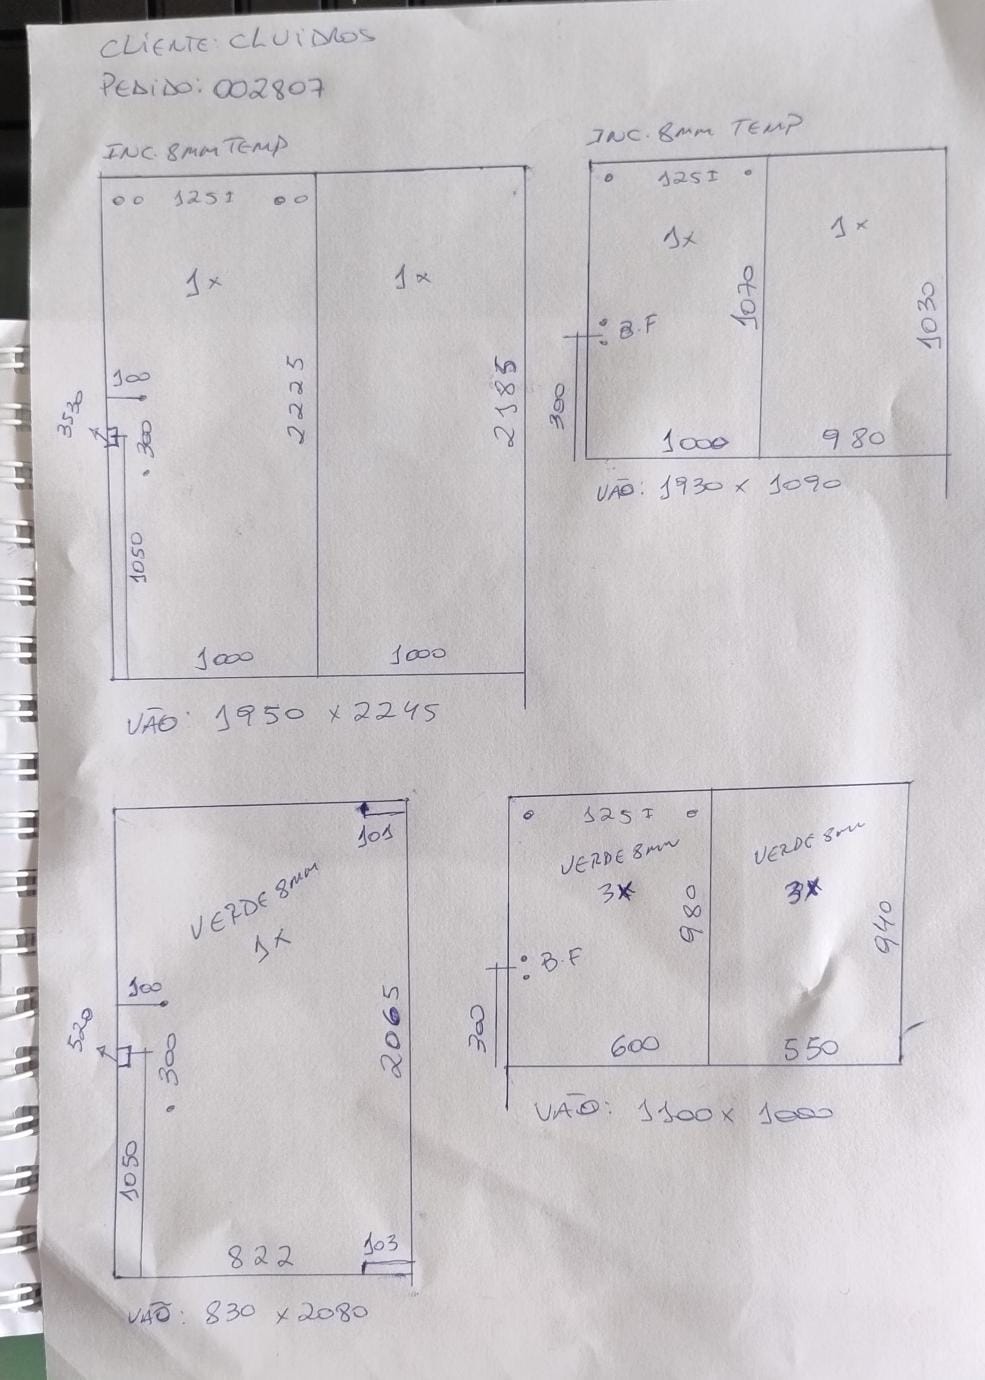 CLIENTE: CLVIDROS
PEDIDO: 002807
INC. 8MM TEMP
125I
1x
1x
100
3530
300
2225
2185
1050
1000
1000
VÃO: 1950 x 2245
INC. 8MM TEMP
125I
1x
1x
1070
1030
B.F
300
1000
980
VÃO: 1930 x 1090
101
VERDE 8MM
1x
100
520
300
2065
1050
822
103
VÃO: 830 x 2080
125I
VERDE 8MM
3x
VERDE 8MM
3x
980
940
B.F
300
600
550
VÃO: 1100 x 1000